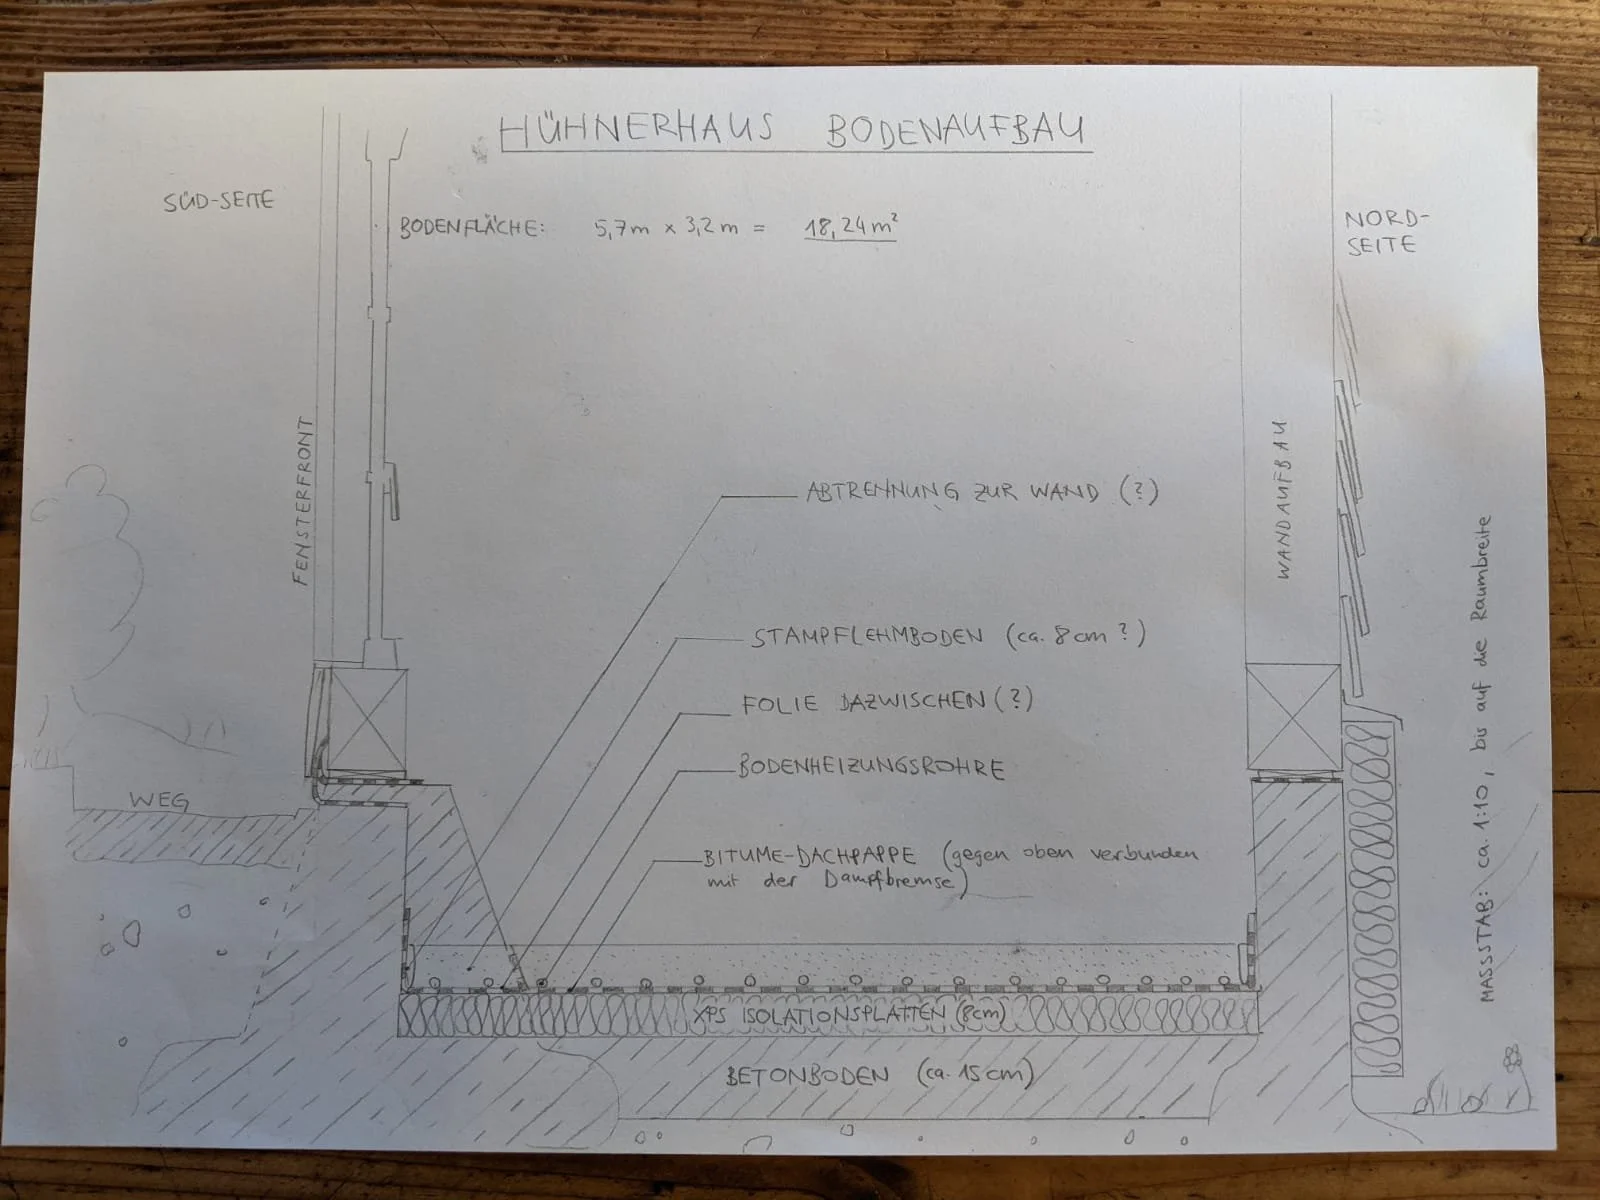 HÜHNERHAUS BODENAUFBAU
SÜD-SEITE
BODENFLÄCHE: 5,7m × 3,2m = 18,24m²
NORD-
SEITE
FENSTERFRONT
WANDAUFBAU
ABTRENNUNG ZUR WAND (?)
STAMPFLEHMBODEN (ca. 8cm?)
FOLIE DAZWISCHEN (?)
BODENHEIZUNGSROHRE
WEG
BITUME-DACHPAPPE (gegen oben verbunden
mit der Dampfbremse)
XPS ISOLATIONSPLATTEN (8cm)
BETONBODEN (ca. 15cm)
MASSSTAB: ca. 1:10, bis auf die Raumbreite